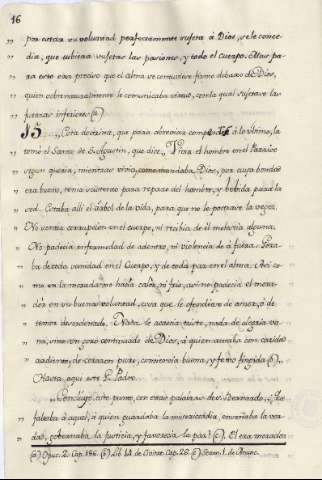 16
" por estar su voluntad perfectamente sujeta a Dios, se le conce-
" dia, que ubiera sujetar las pasiones, y todo el cuerpo. Mas pa-
" ra esto era preciso que el alma se contuviese firme debaxo de Dios,
" quien sobrenaturalmente le comunicaba virtud, con la qual sujetase las
" fuerzas inferiores (a)
15 " Esta doctrina, que para abreviar compendié à lo ultimo, la
" tomó el Santo de S. Agustin, que dice " Vivia el hombre en el Paraiso
" segun queria, mientras vivia como mandaba Dios, por cuya bondad
" era bueno, tenia sustento para reparo del hombre, y bebida para la
" sed. Estaba alli el arbol de la vida, para que no le postrase la vejez.
" No sentia corrupcion en el cuerpo, ni recibia de él molestia alguna.
" No padecia enfermedad de adentro, ni violencia de à fuera. Goza-
" ba de toda sanidad en el Cuerpo, y de toda paz en el alma. Asi co-
" mo en la morada no habia calor, ni frio, asi no padecia el mora-
" dor en su buena voluntad, cosa que le ofendiese de amor, ó de
" temor desordenado. Nada le acaecia triste, nada de alegria va-
" na, sino un gozo continuado de Dios, à quien amaba con caridad
" ardiente, de corazon puro, conciencia buena, y fe no fingida (b) "
" Hasta aqui este S. Padre.
" Concluyo este punto, con estas palabras de S. Bernardo: ¿Que
" faltaba à aquel, à quien guardaba la misericordia, enseñaba la ver-
" dad, gobernaba la justicia, y favorecia la paz? (c). El era morador
(a) Opusc. 2. Cap. 186. (b) Lib. 14. de Civitat. Cap. 26. (c) Serm. 1. de Annunc.